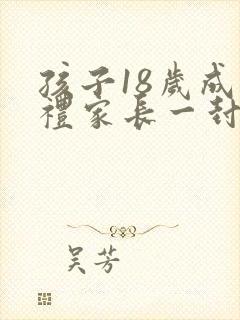 孩子18歲成
禮家長一封
吴芳